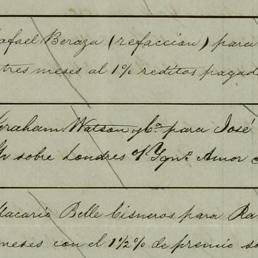 afael Beraza (refaccion) para
tres meses al 1% reditos pagad
Graham Watson y Ca. para José
sobre Londres Amor
Macario Belle Cisneros para Ra
meses con el 1½% de premio so